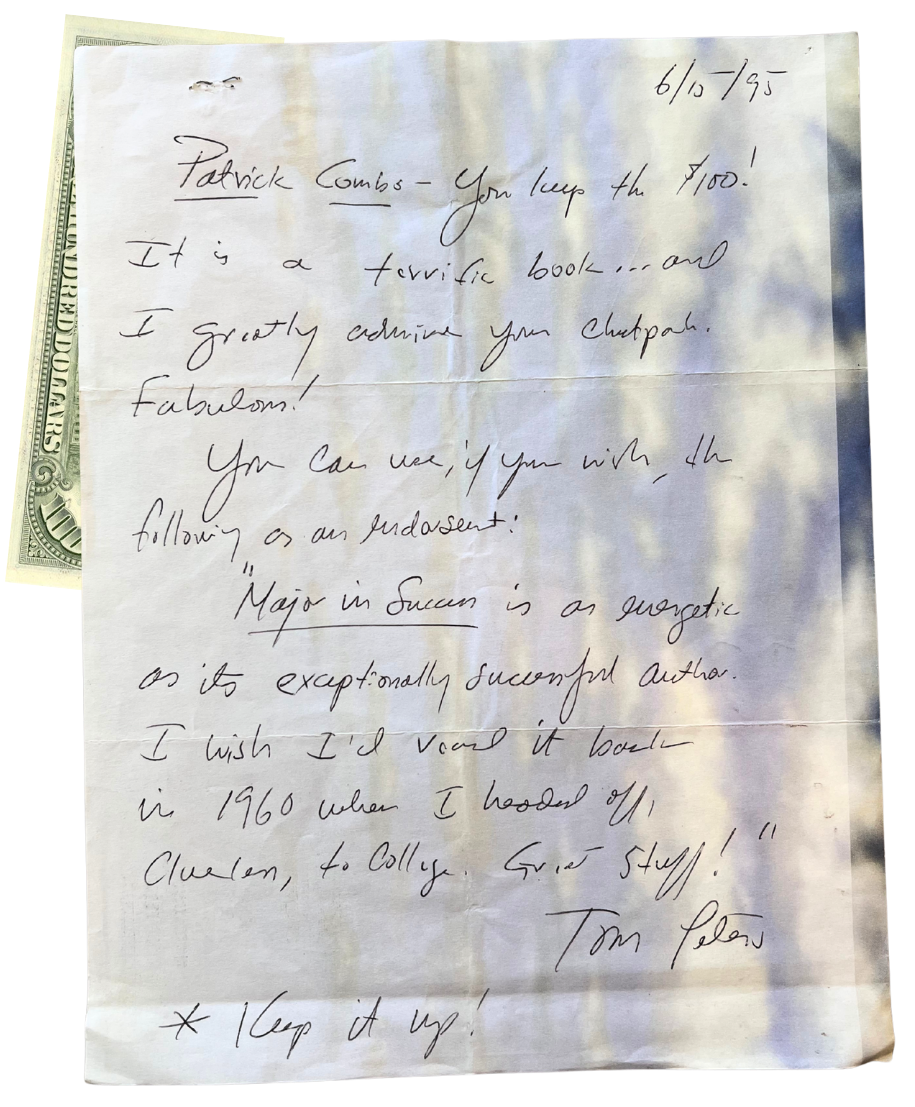 6/15/95
Patrick Combs - You keep the $100!
It is a terrific book... and
I greatly admire your chutpah.
Fabulous!
You can use, if you wish, the
following as an endorsement:
"Major in Success is as energetic
as its exceptionally successful author.
I wish I'd read it back
in 1960 when I headed off,
Clueless, to College. Great Stuff!"
Tom Peters
* Keep it up!
HUNDRED DOLLARS
100